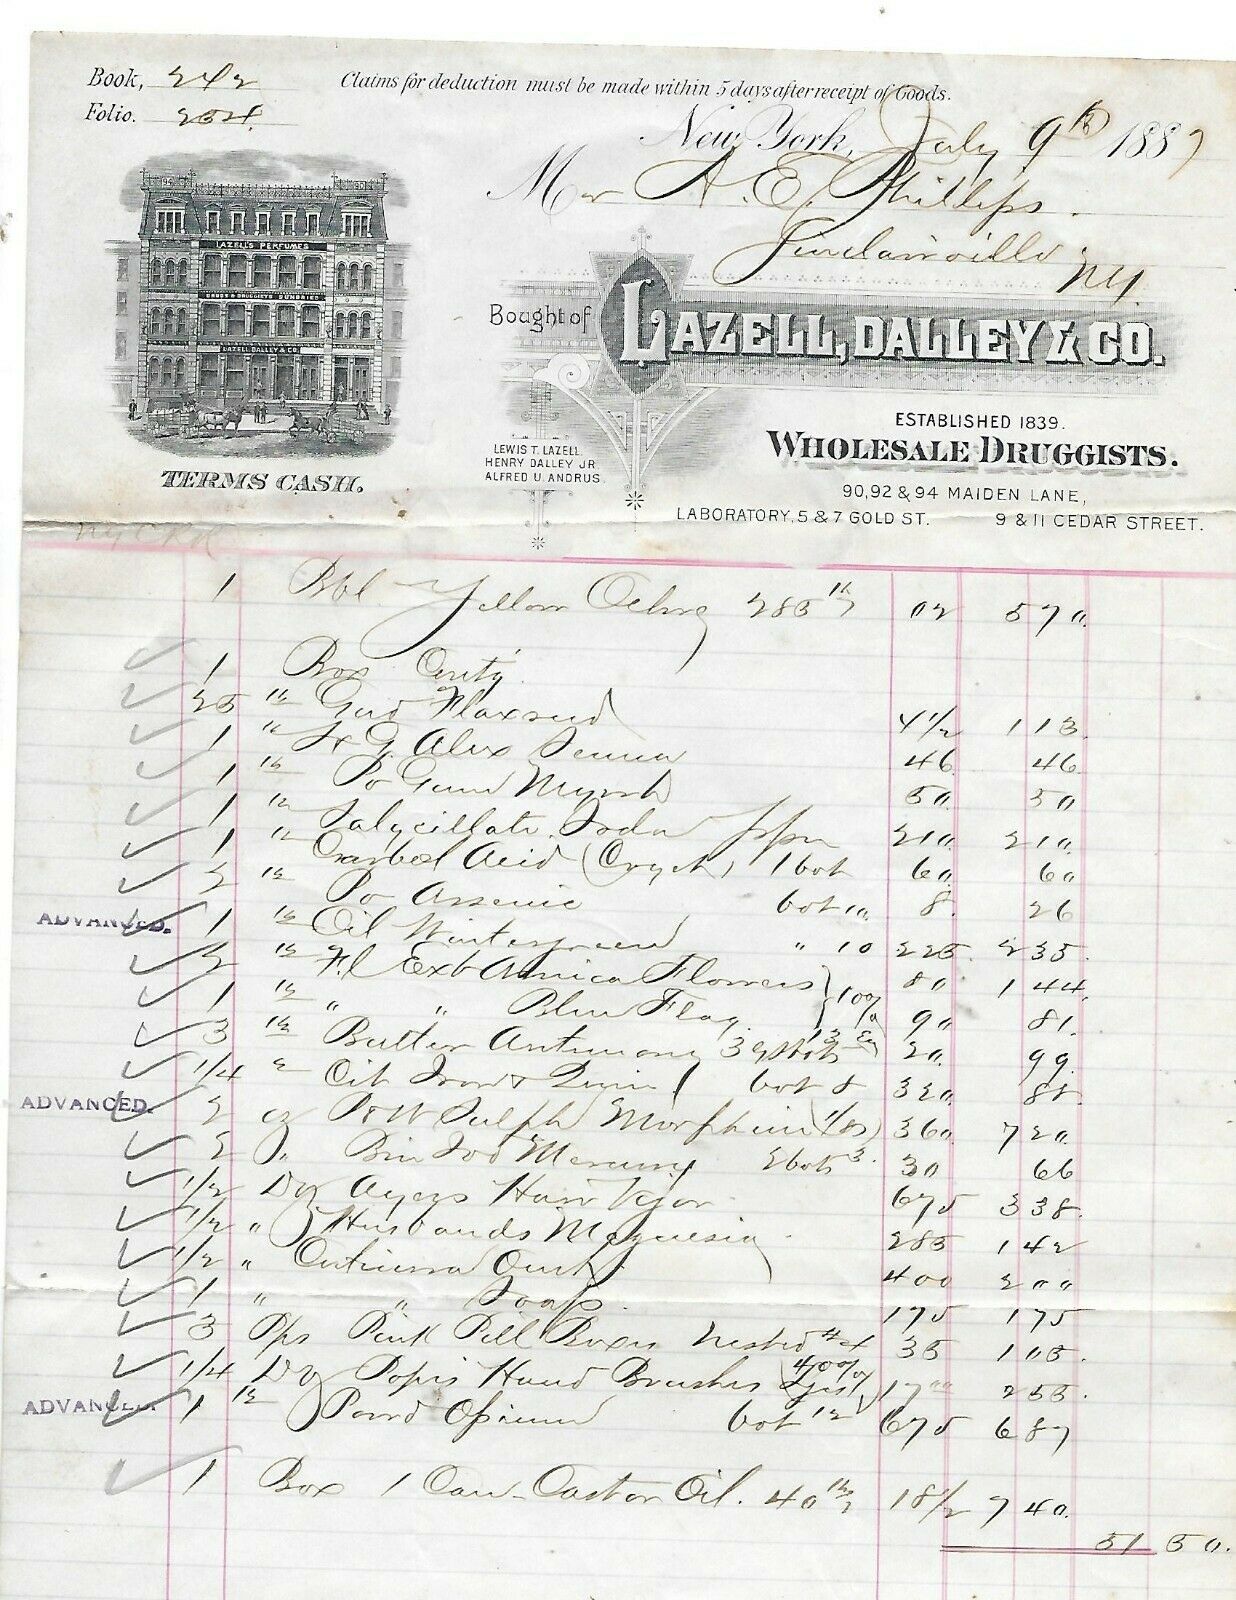 Book, 242
Claims for deduction must be made within 5 days after receipt of Goods.
Folio. 254
New York, July 9th 1887
Mr A. E. Phillips.
Sinclairville
NY.
LAZELL'S PERFUMES
DRUGS & DRUGGISTS SUNDRIES
LAZELL DALLEY & CO.
Bought of LAZELL, DALLEY & CO.
ESTABLISHED 1839.
WHOLESALE DRUGGISTS.
LEWIS T. LAZELL
HENRY DALLEY JR
ALFRED U. ANDRUS.
TERMS CASH.
90, 92 & 94 MAIDEN LANE,
LABORATORY, 5 & 7 GOLD ST. 9 & 11 CEDAR STREET.
1 Bbl Yellow Ochre 285 lb 02 5 70
1 Box Contg
25 lb Grd Flaxseed 4 1/2 1 13
1 " Alex Senna 46 46
1 lb Po Gum Myrrh 50 50
1 lb Salycillate Soda 210 210
1 " Carbol Acid (Cryst) 1 bot 60 60
2 lb Po Arsenic bot 10 8 26
ADVANCED. 1 lb Oil Wintergreen " 10 225 235
2 lb Fl Ext Arnica Flowers 80 1 44
1 lb " " Blue Flag 10% 90 81
3 lb Butter Antimony 3 bots 13 20 99
1/4 " Cit Iron & bot 8 320 88
ADVANCED. 2 oz P & W Sulph Morphine (1/8s) 360 7 20
2 " Bin Iod Mercury 2 bots 3 30 66
1/2 Dz Ayers Hair Vigor 675 338
1/2 " Husbands Magnesia 285 142
1/2 " Cuticura Oint 400 200
1 " " Soap 175 175
3 Pps Pink Pill Boxes nested 35 105
1/4 Dz Popes Hand Brushes 40% 1700 255
ADVANCED. 1 lb Powd Opium bot 12 675 687
1 Box 1 Can Castor Oil. 40 lb 18 1/2 7 40
51 50